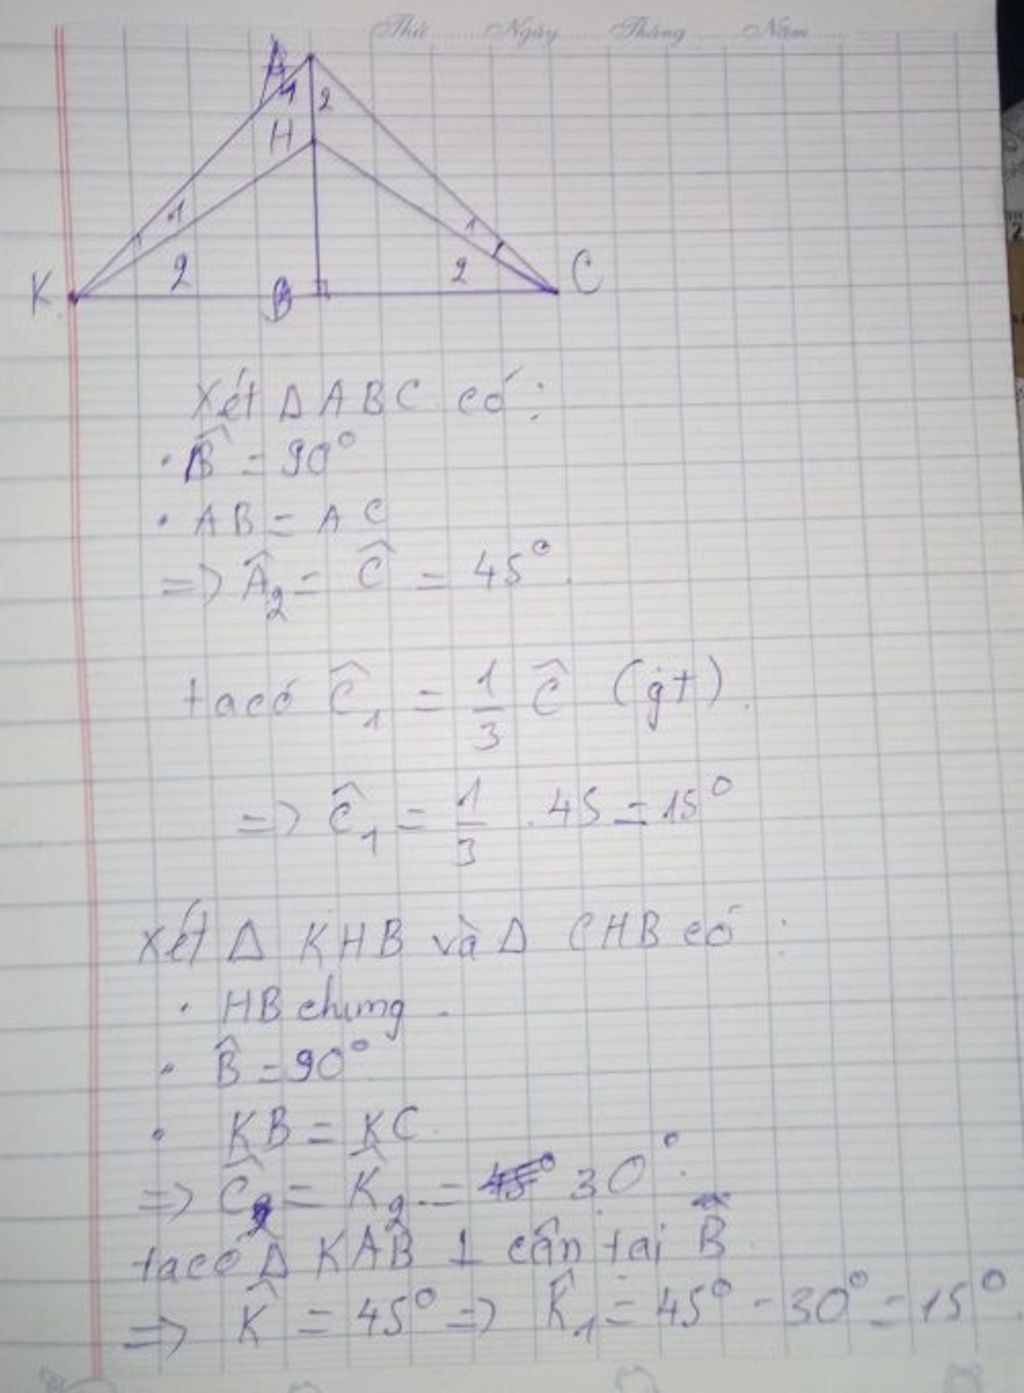 Thứ Ngày Tháng Năm
A
1 2
H
1 1
2 2
K B C
Xét Δ ABC có:
• B̂ = 90°
• AB = AC
=> Â₂ = Ĉ = 45°.
ta có Ĉ₁ = 1/3 Ĉ (gt).
=> Ĉ₁ = 1/3 . 45 = 15°
Xét Δ KHB và Δ CHB có :
• HB chung.
• B̂ = 90°
• KB = KC.
=> Ĉ₂ = K̂₂ = 30°.
ta có Δ KAB ⊥ cân tại B.
=> K̂ = 45° => K̂₁ = 45° - 30° = 15°.